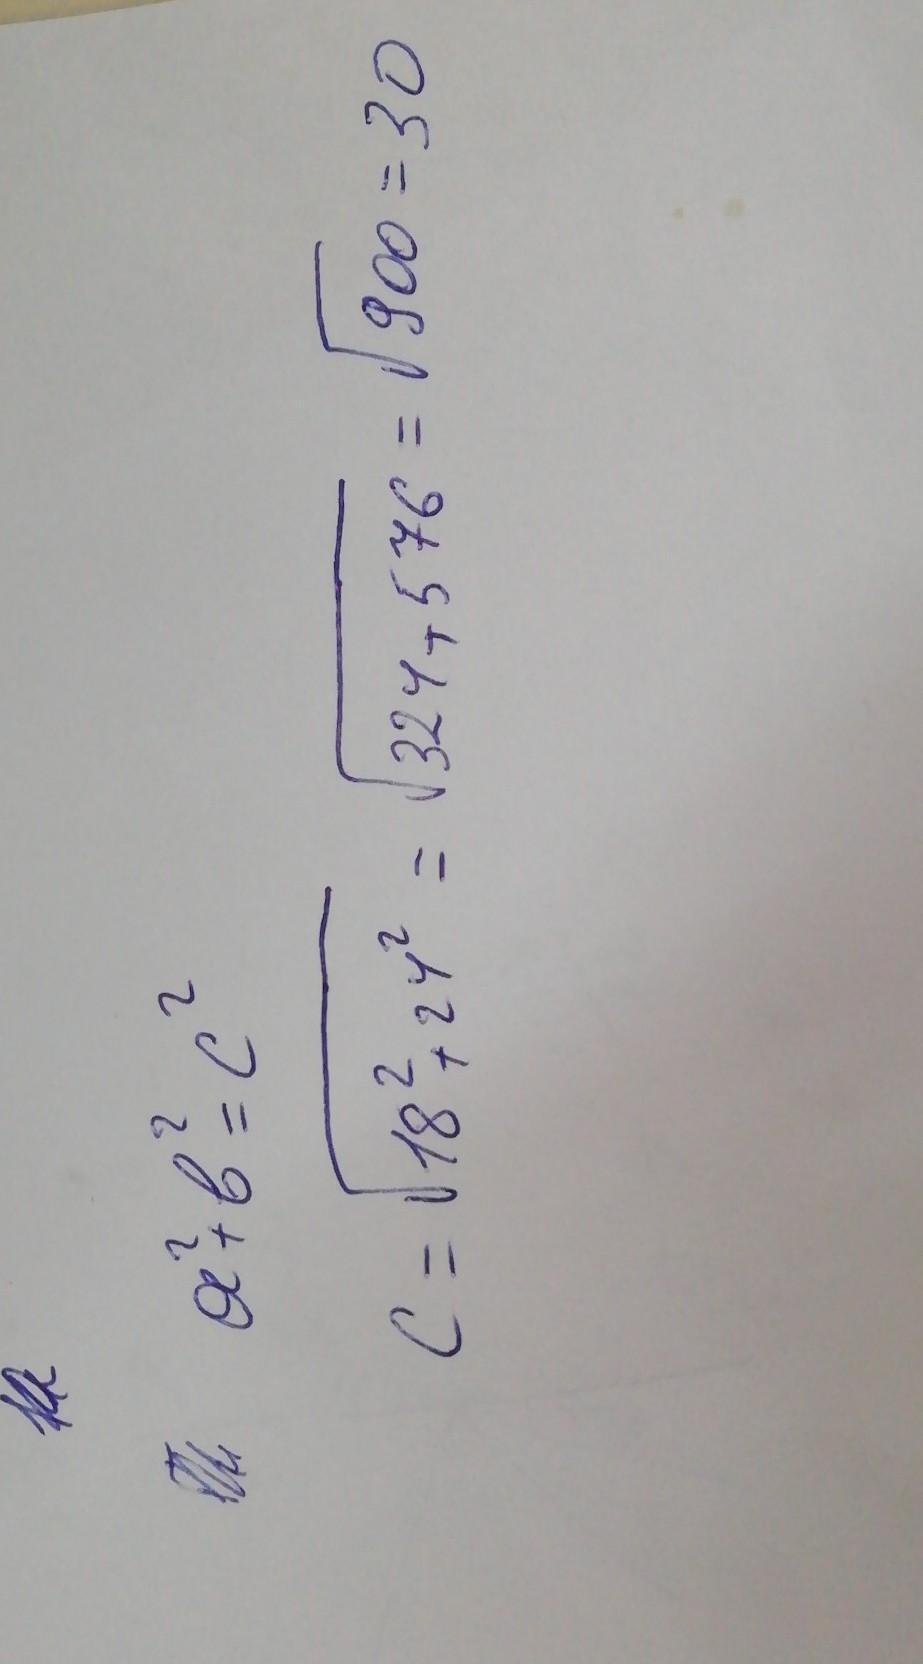 a²+b²=c²
c=√18²+24² = √324+576 = √900 = 30